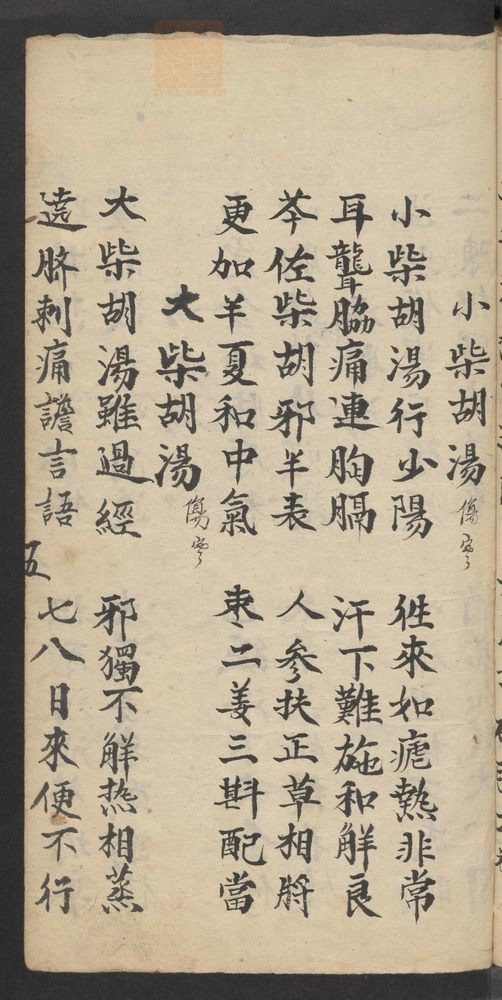 小柴胡湯 傷寒
小柴胡湯行少陽 徃來如瘧熱非常
耳聾脇痛連胸膈 汗下難施和解良
芩佐柴胡邪半表 人參扶正草相將
更加半夏和中氣 枣二姜三斟配當
大柴胡湯 傷寒
大柴胡湯雖過經 邪獨不解热相蒸
遶脐刺痛譫言語 七八日來便不行
五